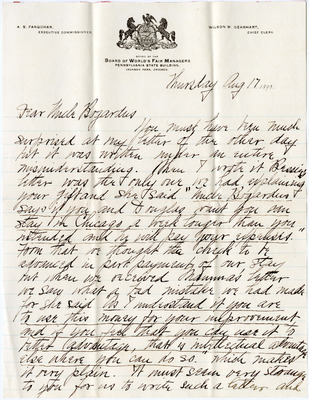 A. B. FARQUHAR,
EXECUTIVE COMMISSIONER.
WILSON W. GEARHART,
CHIEF CLERK.
OFFICE OF THE
BOARD OF WORLD'S FAIR MANAGERS
PENNSYLVANIA STATE BUILDING.
JACKSON PARK, CHICAGO.
Thursday Aug 17
Dear Uncle Bogardus
You must have been much
surprised at my letter of the other day
but it was written under an entire
misunderstanding. When I wrote it Bessie's
letter was the only one we had explaining
your gift and she said "Uncle Bogardus
says if you and want you can
stay in Chicago a week longer than you
intended and he will pay your expenses."
From that we thought the check to be
in part payment of our stay
but when we received Mamma's letter
we saw what a bad mistake we had made
for she said "As I understand it you are
to use this money for your improvement
and if you feel that you can use it to
better advantage, that is intellectual advantage
else where you can do so." which makes
it very plain. It must seem very strange
to you for us to write such a letter and